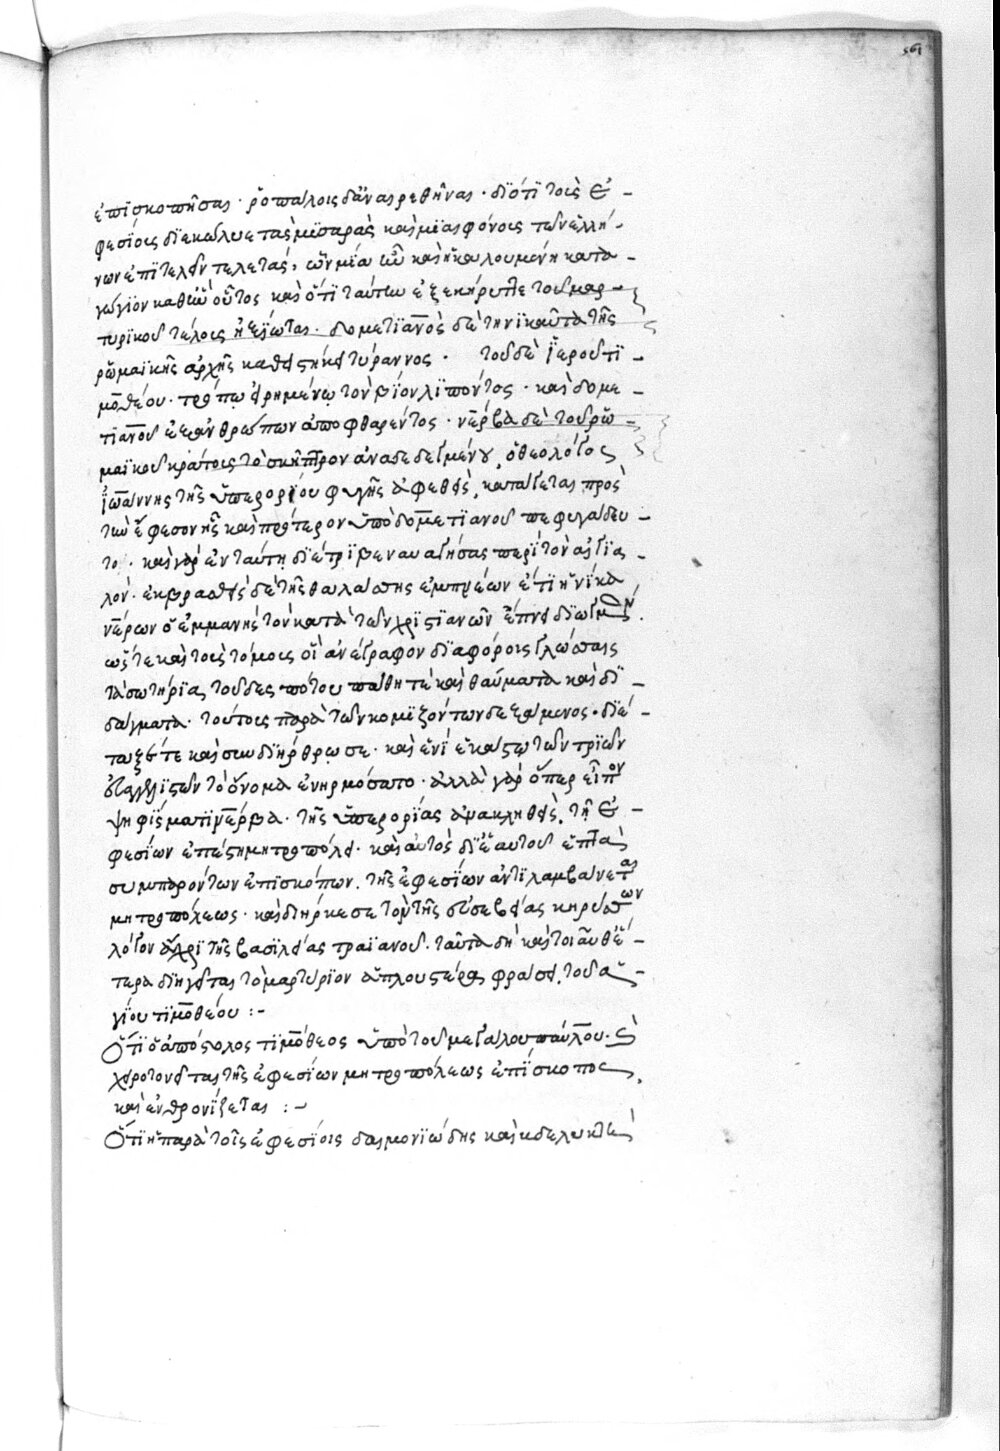 561
ἐπισκοπῆσαι· ῥοπάλοις δ' ἀναιρεθῆναι· διότι τοῖς ἐ-
φεσίοις διεκώλυε τὰς μυσαρὰς καὶ μιαιφόνους τῶν ἑλλή-
νων ἐπιτελεῖν τελετάς, ὧν μία ἦν καὶ ἡ καλουμένη κατα-
γώγιον καθ' ἣν οὗτος καὶ ὅτι ταύτην ἐξεκήρυττε τοῦ μαρ-
τυρικοῦ τέλους ἠξίωται· δομετιανὸς δὲ τηνικαῦτα τῆς
ῥωμαϊκῆς ἀρχῆς καθειστήκει τύραννος· τοῦ δὲ ἱεροῦ τι-
μοθέου· τρόπῳ εἰρημένῳ τὸν βίον λιπόντος· καὶ δομε-
τιανοῦ ἐξ ἀνθρώπων ἀποφθαρέντος· νέρβα δὲ τοῦ ῥω-
μαϊκοῦ κράτους τὸ σκῆπτρον ἀναδεδειγμένου, ὁ θεολόγος
ἰωάννης τῆς ὑπερορίου φυγῆς ἀφεθεὶς, κατάγεται πρὸς
τὴν ἔφεσον ἧς καὶ πρότερον ὑπὸ δομετιανοῦ πεφυγάδευ-
το· καὶ γὰρ ἐν ταύτῃ διέτριβε ναυαγήσας περὶ τὸν αἰγια-
λόν· ἐκβρασθεὶς δὲ τῆς θαλάσσης ἐμπνέων ἔτι ἡνίκα
νέρων ὁ ἐμμανὴς τὸν κατὰ τῶν χριστιανῶν ἔπνει διωγμὸν.
ὥστε καὶ τοὺς τόμους οἳ ἀνέγραφον διαφόροις γλώσσαις
τὰ σωτήρια τοῦ δεσπότου πάθη τὲ καὶ θαύματα καὶ δι-
δάγματα· τούτους παρὰ τῶν κομιζόντων δεξάμενος· διέ-
ταξέ τε καὶ συνδιήρθρωσε· καὶ ἑνὶ ἑκάστῳ τῶν τριῶν
εὐαγγελιστῶν τὸ ὄνομα ἐνηρμόσατο· ἀλλὰ γὰρ ὅπερ εἶπον
ψηφίσματι νέρβα· τῆς ὑπερορίας ἀνακληθεὶς, τῇ ἐ-
φεσίων ἐπέστη μητροπόλει· καὶ αὐτὸς δι' ἑαυτοῦ ἑπτὰ
συμπαρόντων ἐπισκόπων, τῆς ἐφεσίων ἀντιλαμβάνεται
μητροπόλεως· καὶ διήρκεσε τὸν τῆς εὐσεβείας κηρύσσων
λόγον ἄχρι τῆς βασιλείας τραϊανοῦ· ταῦτα δὴ καὶ τοιαῦθ' ἕ-
τερα διηγεῖται τὸ μαρτύριον ἁπλουστέρᾳ φράσει, τοῦ ἁ-
γίου τιμοθέου :-
Ὅτι ὁ ἀπόστολος τιμόθεος ὑπὸ τοῦ μεγάλου παύλου· καὶ
χειροτονεῖται τῆς ἐφεσίων μητροπόλεως ἐπίσκοπος,
καὶ ἐνθρονίζεται :-
Ὅτι ἡ παρὰ τοῖς ἐφεσίοις δαιμονιώδης καὶ βδελυκτὴ